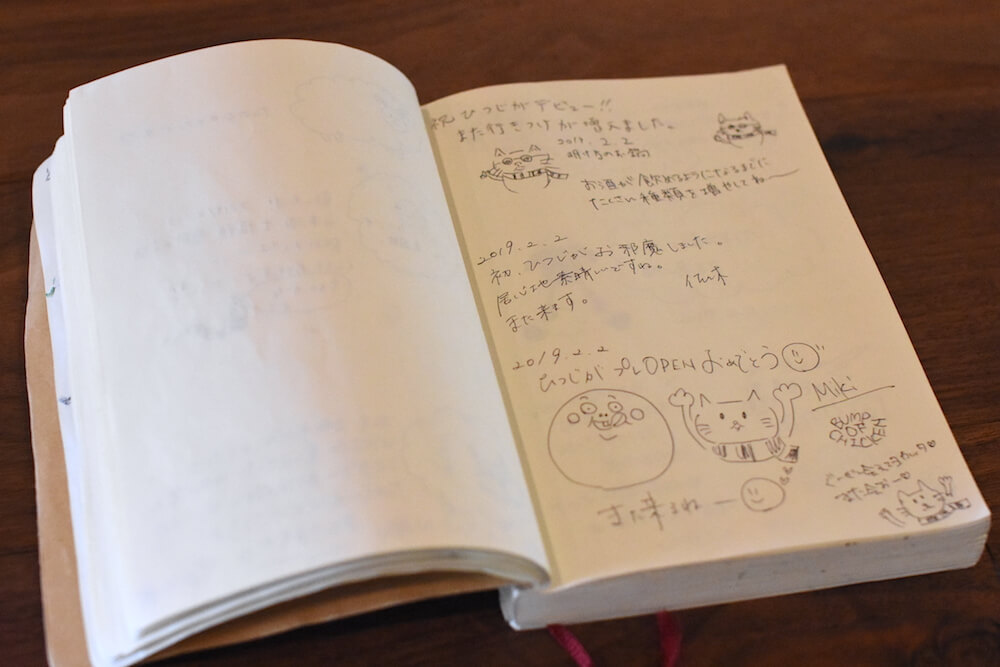 祝 ひつじがデビュー!!
また行きつけが増えました。
2019.2.2
明け方のお鍋
お酒が飲めるようになるまでに
たくさん種類を増やしてね〜
2019.2.2
初、ひつじがお邪魔しました。
居心地素晴しいですね。
また来ます。
2019.2.2
ひつじが プレOPENおめでとう
Miki
BUMP
OF
CHICKEN
また来るねー
また会おー♡